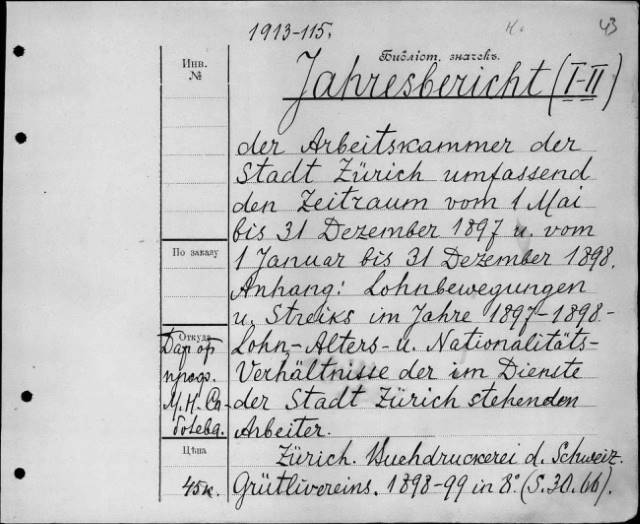 1913-115.
К.
43
Библіот. значекъ.
Инв.
№
Jahresbericht (I-II)
der Arbeitskammer der
Stadt Zürich umfassend
den Zeitraum vom 1 Mai
bis 31 Dezember 1897 u. vom
По заказу
1 Januar bis 31 Dezember 1898.
Anhang: Lohnbewegungen
u. Streiks im Jahre 1897-1898-
Откуда
Lohn-Alters- u. Nationalitäts-
Verhältnisse der im Dienste
der Stadt Zürich stehenden
Arbeiter.
Дар от
проф.
М.Н. Со-
болева.
Цѣна
45к.
Zürich. Buchdruckerei d. Schweiz.
Grütlivereins. 1898-99 in 8°. (S. 30. 66).